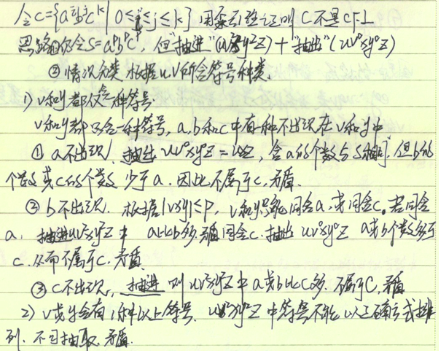 令C={aⁱbʲcᵏ | 0≤i≤j≤k} 用泵引理证明 C不是CFL
思路 取 S=aᵖbᵖcᵖ, 但"抽进"(uv²xy²z)+"抽出"(uv⁰xy⁰z)
②情况分类 根据u,v所含符号种类.
1) v和y都仅含一种符号
v和y都只含一种符号, a.b和c中有一种不出现在v和y中
① a不出现, 抽出 uv⁰xy⁰z=uxz, 含a的个数与S相同, 但b的
个数或c的个数 少于a. 因此不属于C, 矛盾.
② b不出现. 根据|vxy|≤p, v和y只能同含a, 或同含c. 若同含
a, 抽进uv²xy²z中 a比b多 若同含c. 抽出 uv⁰xy⁰z a或b个数多于
c. 从而不属于C. 矛盾
③ c不出现, 抽进 则 uv²xy²z中 a或b比c多. 不属于C, 矛盾
2) v或y含有1种以上符号. uv²xy²z 中符号不能以正确方式排
列. 不可抽取. 矛盾.